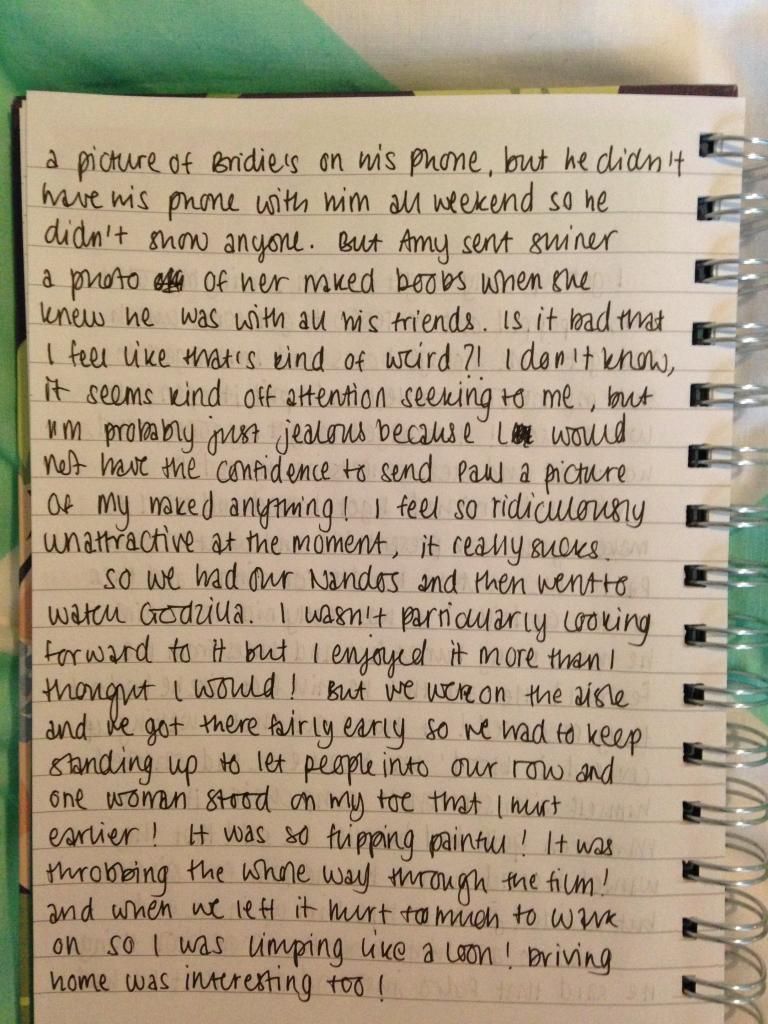 a picture of Bridie's on his phone, but he didn't
have his phone with him all weekend so he
didn't show anyone. But Amy sent Shiner
a photo of her naked boobs when she
knew he was with all his friends. Is it bad that
I feel like that's kind of weird?! I don't know,
it seems kind off attention seeking to me, but
I'm probably just jealous because I would
not have the confidence to send Paul a picture
of my naked anything! I feel so ridiculously
unattractive at the moment, it really sucks.
So we had our Nandos and then went to
watch Godzilla. I wasn't particularly looking
forward to it but I enjoyed it more than I
thought I would! But we were on the aisle
and we got there fairly early so we had to keep
standing up to let people into our row and
one woman stood on my toe that I hurt
earlier! It was so flipping painful! It was
throbbing the whole way through the film!
and when we left it hurt too much to walk
on so I was limping like a loon! Driving
home was interesting too!